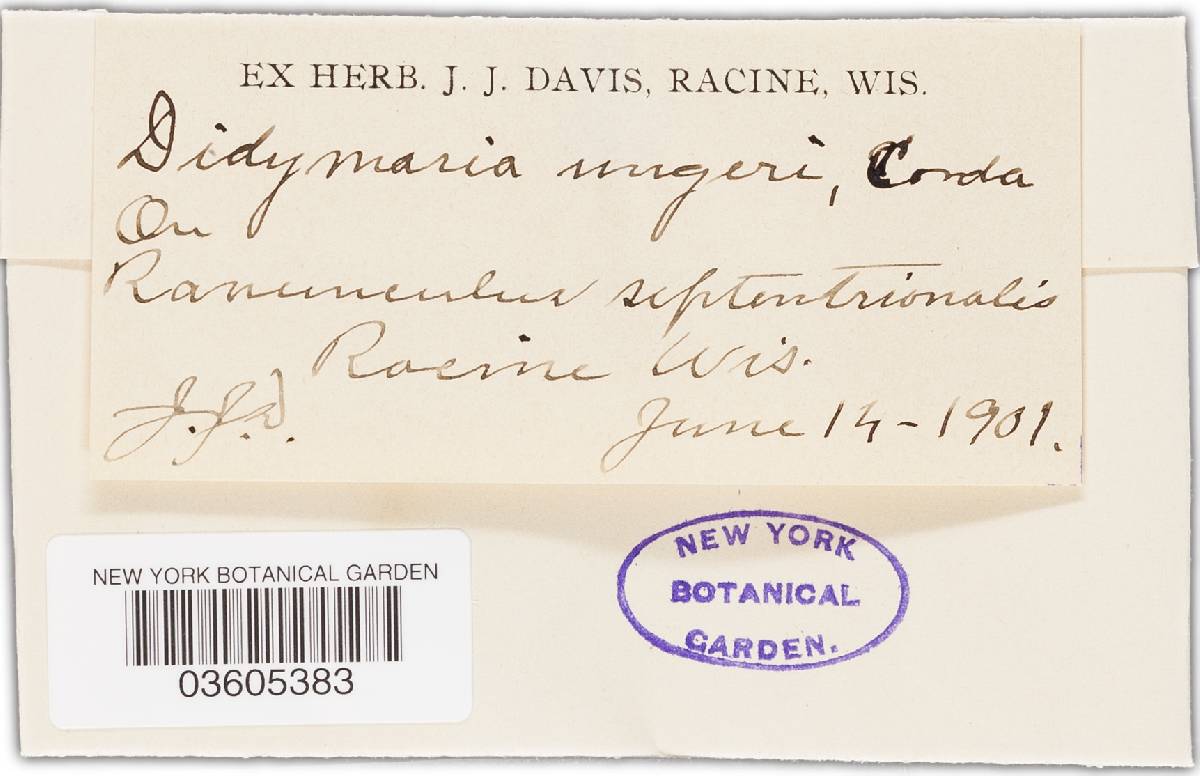 EX HERB. J. J. DAVIS, RACINE, WIS.
Didymaria ungeri, Corda
On
Ranunculus septentrionalis
Racine Wis.
J.J.D.
June 14-1901.
NEW YORK
BOTANICAL
GARDEN.
NEW YORK BOTANICAL GARDEN
03605383